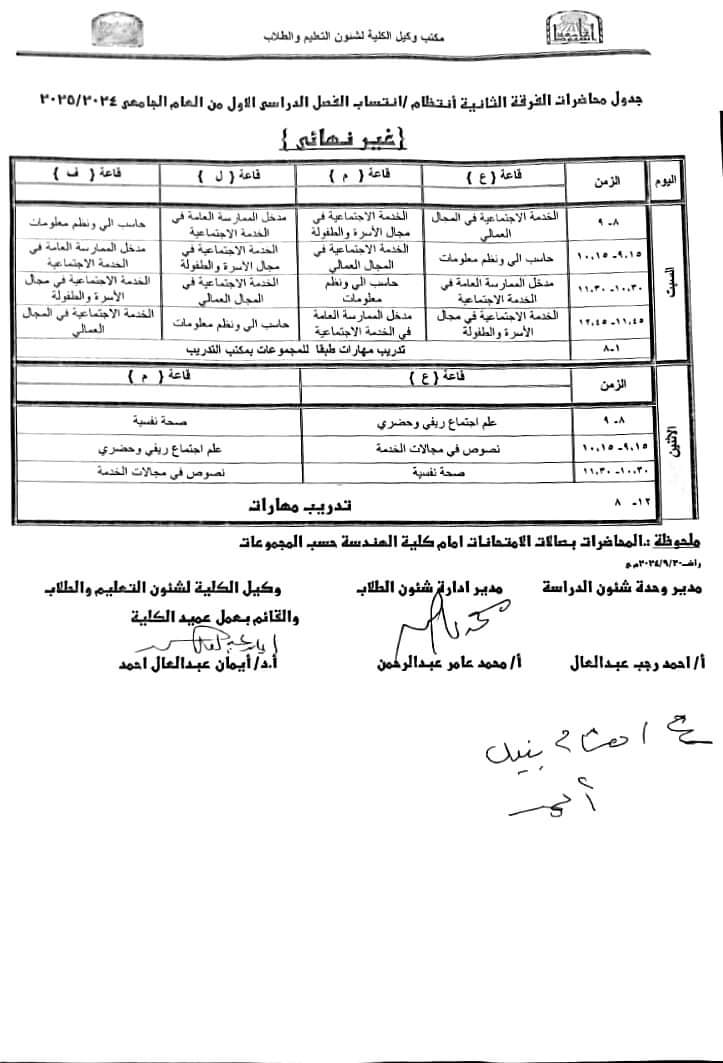 مكتب وكيل الكلية لشئون التعليم والطلاب
جدول محاضرات الفرقة الثانية أنتظام /انتساب الفصل الدراسى الاول من العام الجامعى ٢٠٢٥/٢٠٢٤
{غير نهائى}
اليوم الزمن قاعة { ع } قاعة { م } قاعة { ل } قاعة { ف }
السبت
٨- ٩ الخدمة الاجتماعية في المجال العمالي الخدمة الاجتماعية في مجال الأسرة والطفولة مدخل الممارسة العامة في الخدمة الاجتماعية حاسب الي ونظم معلومات
٩,١٥- ١٠,١٥ حاسب الي ونظم معلومات الخدمة الاجتماعية في المجال العمالي الخدمة الاجتماعية في مجال الأسرة والطفولة مدخل الممارسة العامة في الخدمة الاجتماعية
١٠,٣٠- ١١,٣٠ مدخل الممارسة العامة في الخدمة الاجتماعية حاسب الي ونظم معلومات الخدمة الاجتماعية في المجال العمالي الخدمة الاجتماعية في مجال الأسرة والطفولة
١١,٤٥- ١٢,٤٥ الخدمة الاجتماعية في مجال الأسرة والطفولة مدخل الممارسة العامة في الخدمة الاجتماعية حاسب الي ونظم معلومات الخدمة الاجتماعية في المجال العمالي
١-٨ تدريب مهارات طبقا للمجموعات بمكتب التدريب
الاثنين
الزمن قاعة { ع } قاعة { م }
٨- ٩ علم اجتماع ريفي وحضري صحة نفسية
٩,١٥- ١٠,١٥ نصوص في مجالات الخدمة علم اجتماع ريفي وحضري
١٠,٣٠- ١١,٣٠ صحة نفسية نصوص في مجالات الخدمة
١٢- ٨ تدريب مهارات
ملحوظة :.المحاضرات بصالات الامتحانات امام كلية الهندسة حسب المجموعات
مدير وحدة شئون الدراسة مدير ادارة شئون الطلاب وكيل الكلية لشئون التعليم والطلاب
والقائم بعمل عميد الكلية
أ/ احمد رجب عبدالعال أ/ محمد عامر عبدالرحمن أ.د/ أيمان عبدالعال احمد